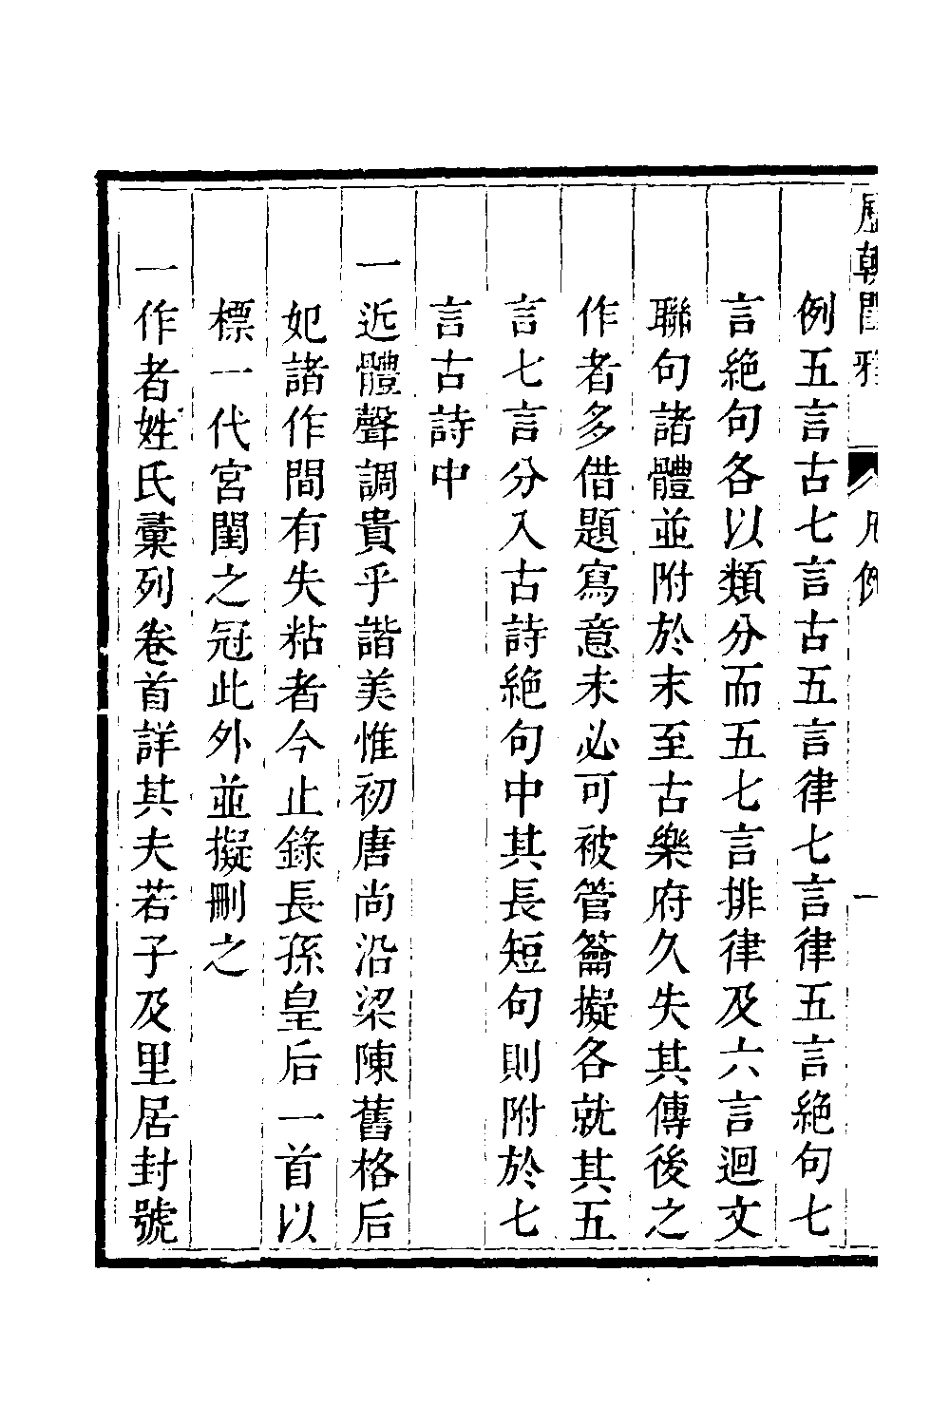 歷朝閨雅 凡例 一
例五言古七言古五言律七言律五言絶句七
言絶句各以類分而五七言排律及六言迴文
聯句諸體並附於末至古樂府久失其傳後之
作者多借題寫意未必可被管籥擬各就其五
言七言分入古詩絶句中其長短句則附於七
言古詩中
一近體聲調貴乎諧美惟初唐尚沿梁陳舊格后
妃諸作間有失粘者今止錄長孫皇后一首以
標一代宮闈之冠此外並擬刪之
一作者姓氏彙列卷首詳其夫若子及里居封號